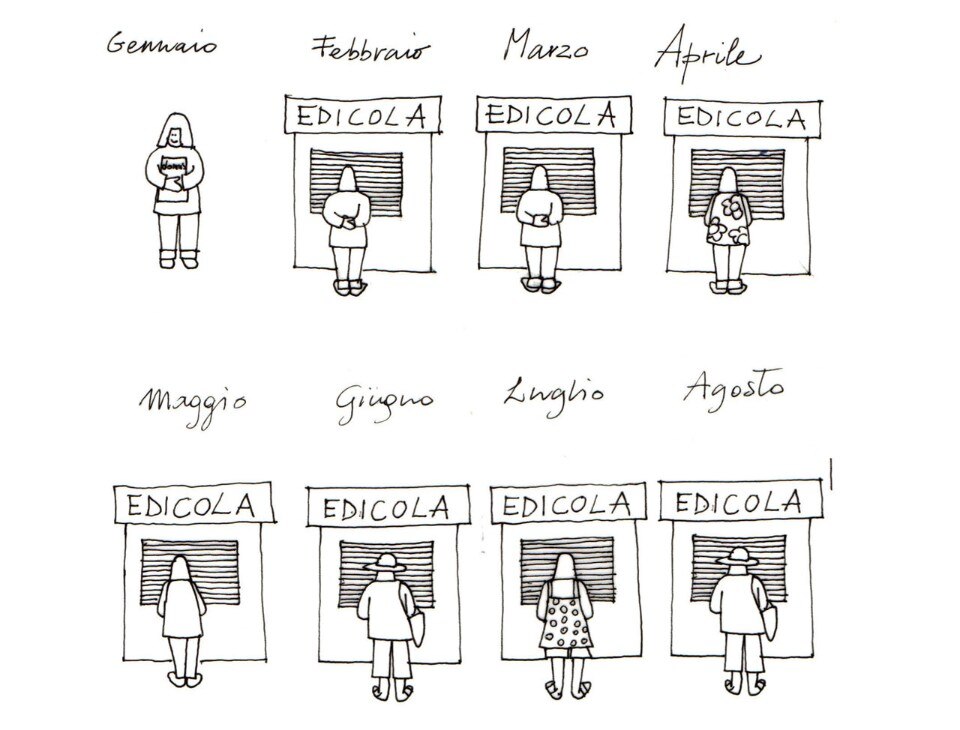 Gennaio
Febbraio
Marzo
Aprile
EDICOLA
EDICOLA
EDICOLA
Maggio
Giugno
Luglio
Agosto
EDICOLA
EDICOLA
EDICOLA
EDICOLA